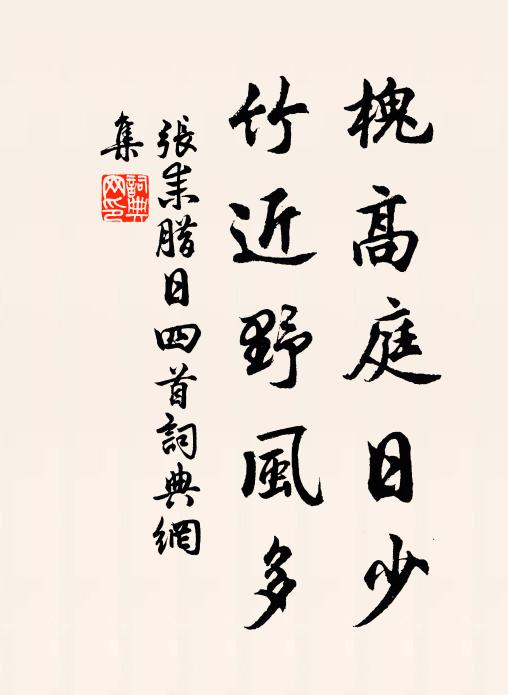 槐高庭日少
竹近野風多
張耒腊日四首詞典網
集
詞典網印